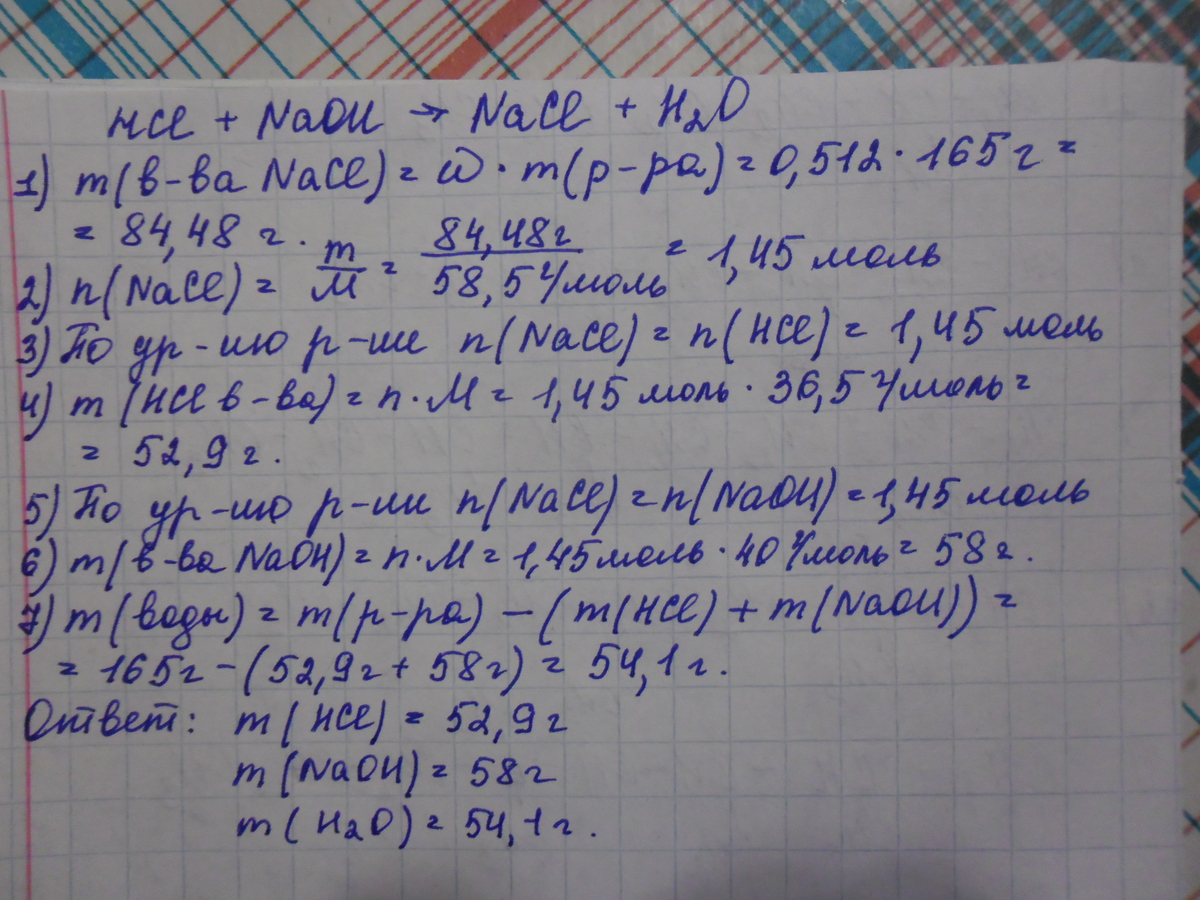 HCl + NaOH → NaCl + H₂O
1) m(в-ва NaCl) = ω · m(р-ра) = 0,512 · 165г =
= 84,48 г.
2) n(NaCl) = m/M = 84,48г/58,5г/моль = 1,45 моль
3) По ур-ию р-ии n(NaCl) = n(HCl) = 1,45 моль
4) m(HCl в-ва) = n·M = 1,45 моль · 36,5г/моль =
= 52,9 г.
5) По ур-ию р-ии n(NaCl) = n(NaOH) = 1,45 моль
6) m(в-ва NaOH) = n·M = 1,45 моль · 40г/моль = 58г.
7) m(воды) = m(р-ра) – (m(HCl) + m(NaOH)) =
= 165г – (52,9г + 58г) = 54,1г.
Ответ: m(HCl) = 52,9г
m(NaOH) = 58г
m(H₂O) = 54,1г.